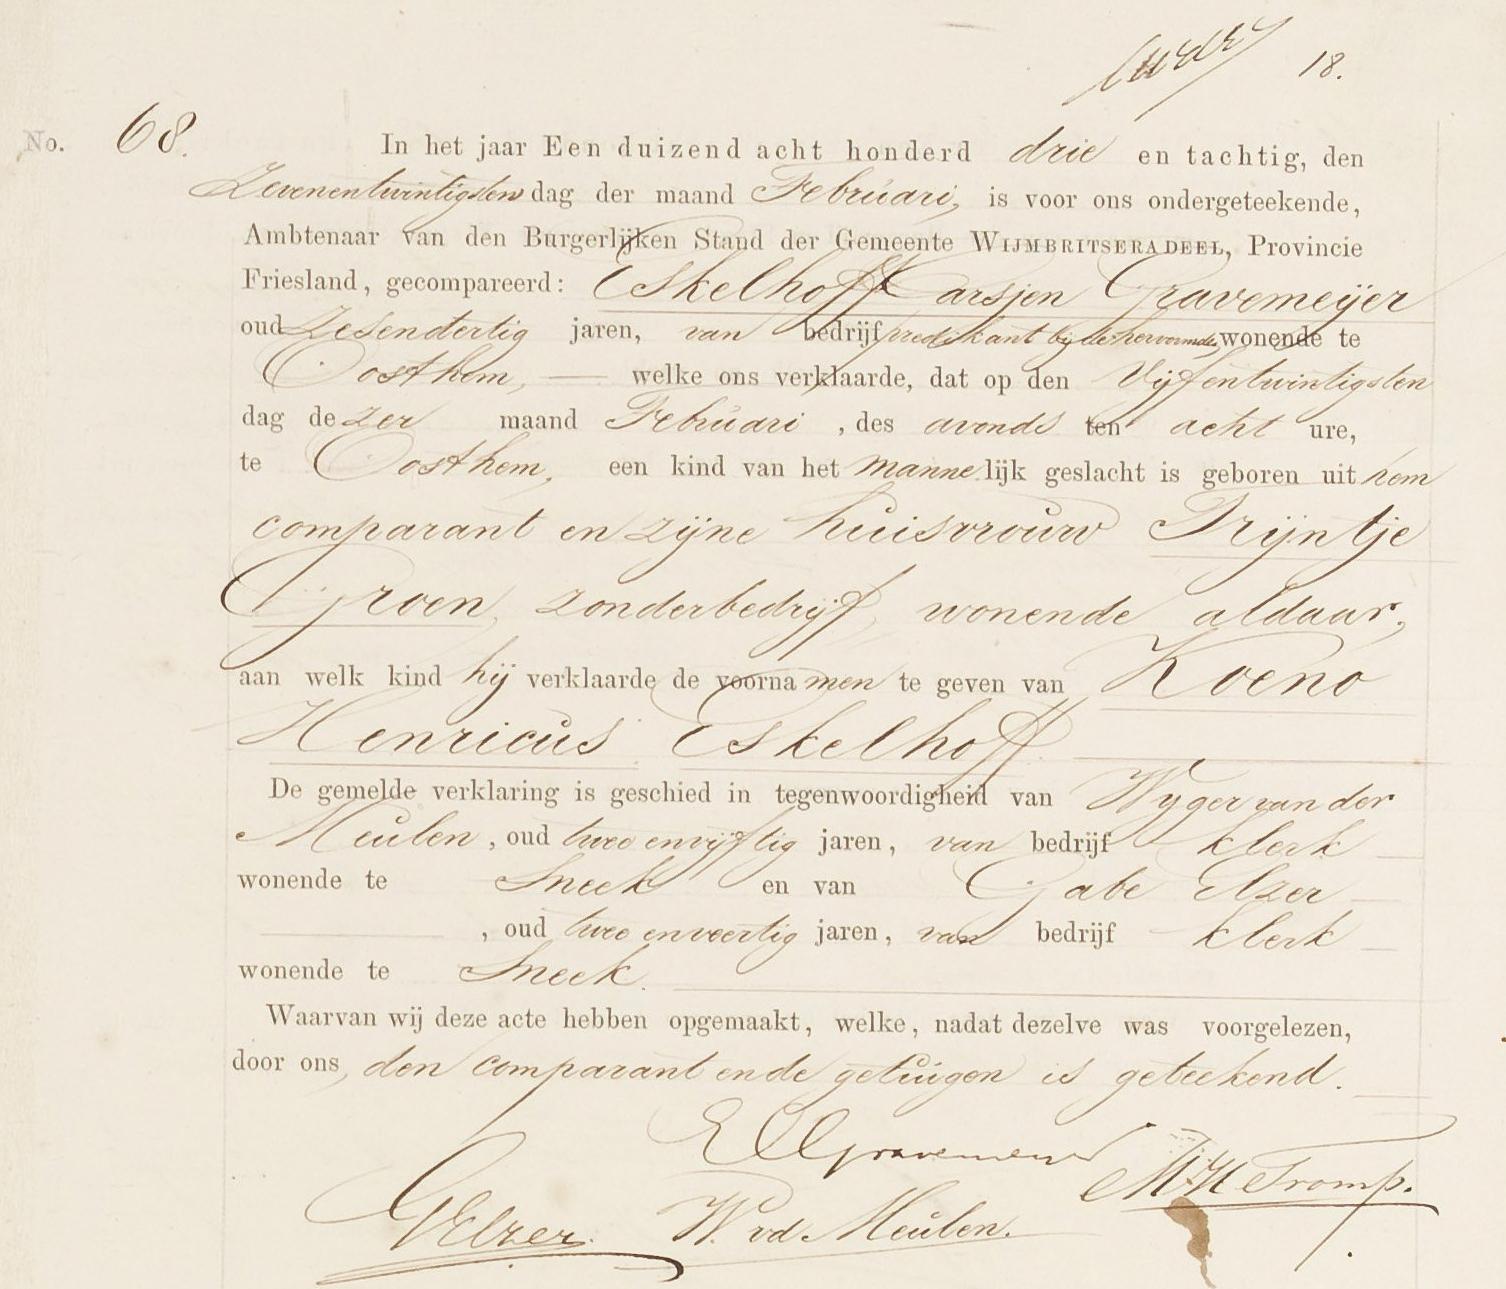 18.
No. 68. In het jaar Een duizend acht honderd drie en tachtig, den
Zevenentwintigsten dag der maand Februari, is voor ons ondergeteekende,
Ambtenaar van den Burgerlijken Stand der Gemeente WIJMBRITSERADEEL, Provincie
Friesland, gecompareerd: Eskelhoff Carsjen Gravemeijer
oud Zesendertig jaren, van bedrijf predikant bij de hervormden wonende te
Oosthem, — welke ons verklaarde, dat op den Vijfentwintigsten
dag dezer maand Februari, des avonds ten acht ure,
te Oosthem, een kind van het mannelijk geslacht is geboren uit hem
comparant en zijne huisvrouw Trijntje
Groen, zonder bedrijf, wonende aldaar,
aan welk kind hij verklaarde de voornamen te geven van Koeno
Henricus Eskelhoff.
De gemelde verklaring is geschied in tegenwoordigheid van Wyger van der
Meulen, oud twee en vijftig jaren, van bedrijf klerk
wonende te Sneek en van Gabe Elzer
, oud twee en veertig jaren, van bedrijf klerk
wonende te Sneek.
Waarvan wij deze acte hebben opgemaakt, welke, nadat dezelve was voorgelezen,
door ons, den comparant en de getuigen is geteekend.
E C Gravemeijer
M H Tromp.
G Elzer. W. vd Meulen.